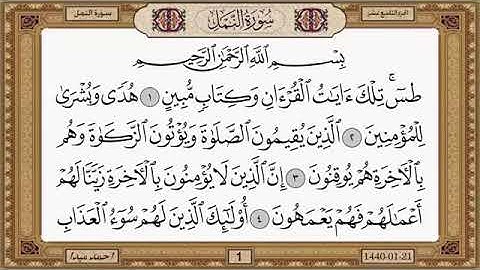 سورة النمل
سُورَةُ النَّمْلِ
الجزء التاسع عشر
بِسْمِ اللَّهِ الرَّحْمَٰنِ الرَّحِيمِ
طسٓ ۚ تِلْكَ ءَايَٰتُ الْقُرْءَانِ وَكِتَابٍ مُّبِينٍ ١ هُدًى وَبُشْرَىٰ
لِلْمُؤْمِنِينَ ٢ الَّذِينَ يُقِيمُونَ الصَّلَوٰةَ وَيُؤْتُونَ الزَّكَوٰةَ وَهُم
بِالْءَاخِرَةِ هُمْ يُوقِنُونَ ٣ إِنَّ الَّذِينَ لَا يُؤْمِنُونَ بِالْءَاخِرَةِ زَيَّنَّا لَهُمْ
أَعْمَٰلَهُمْ فَهُمْ يَعْمَهُونَ ٤ أُو۟لَٰٓئِكَ الَّذِينَ لَهُمْ سُوٓءُ الْعَذَابِ
1
1440-01-21